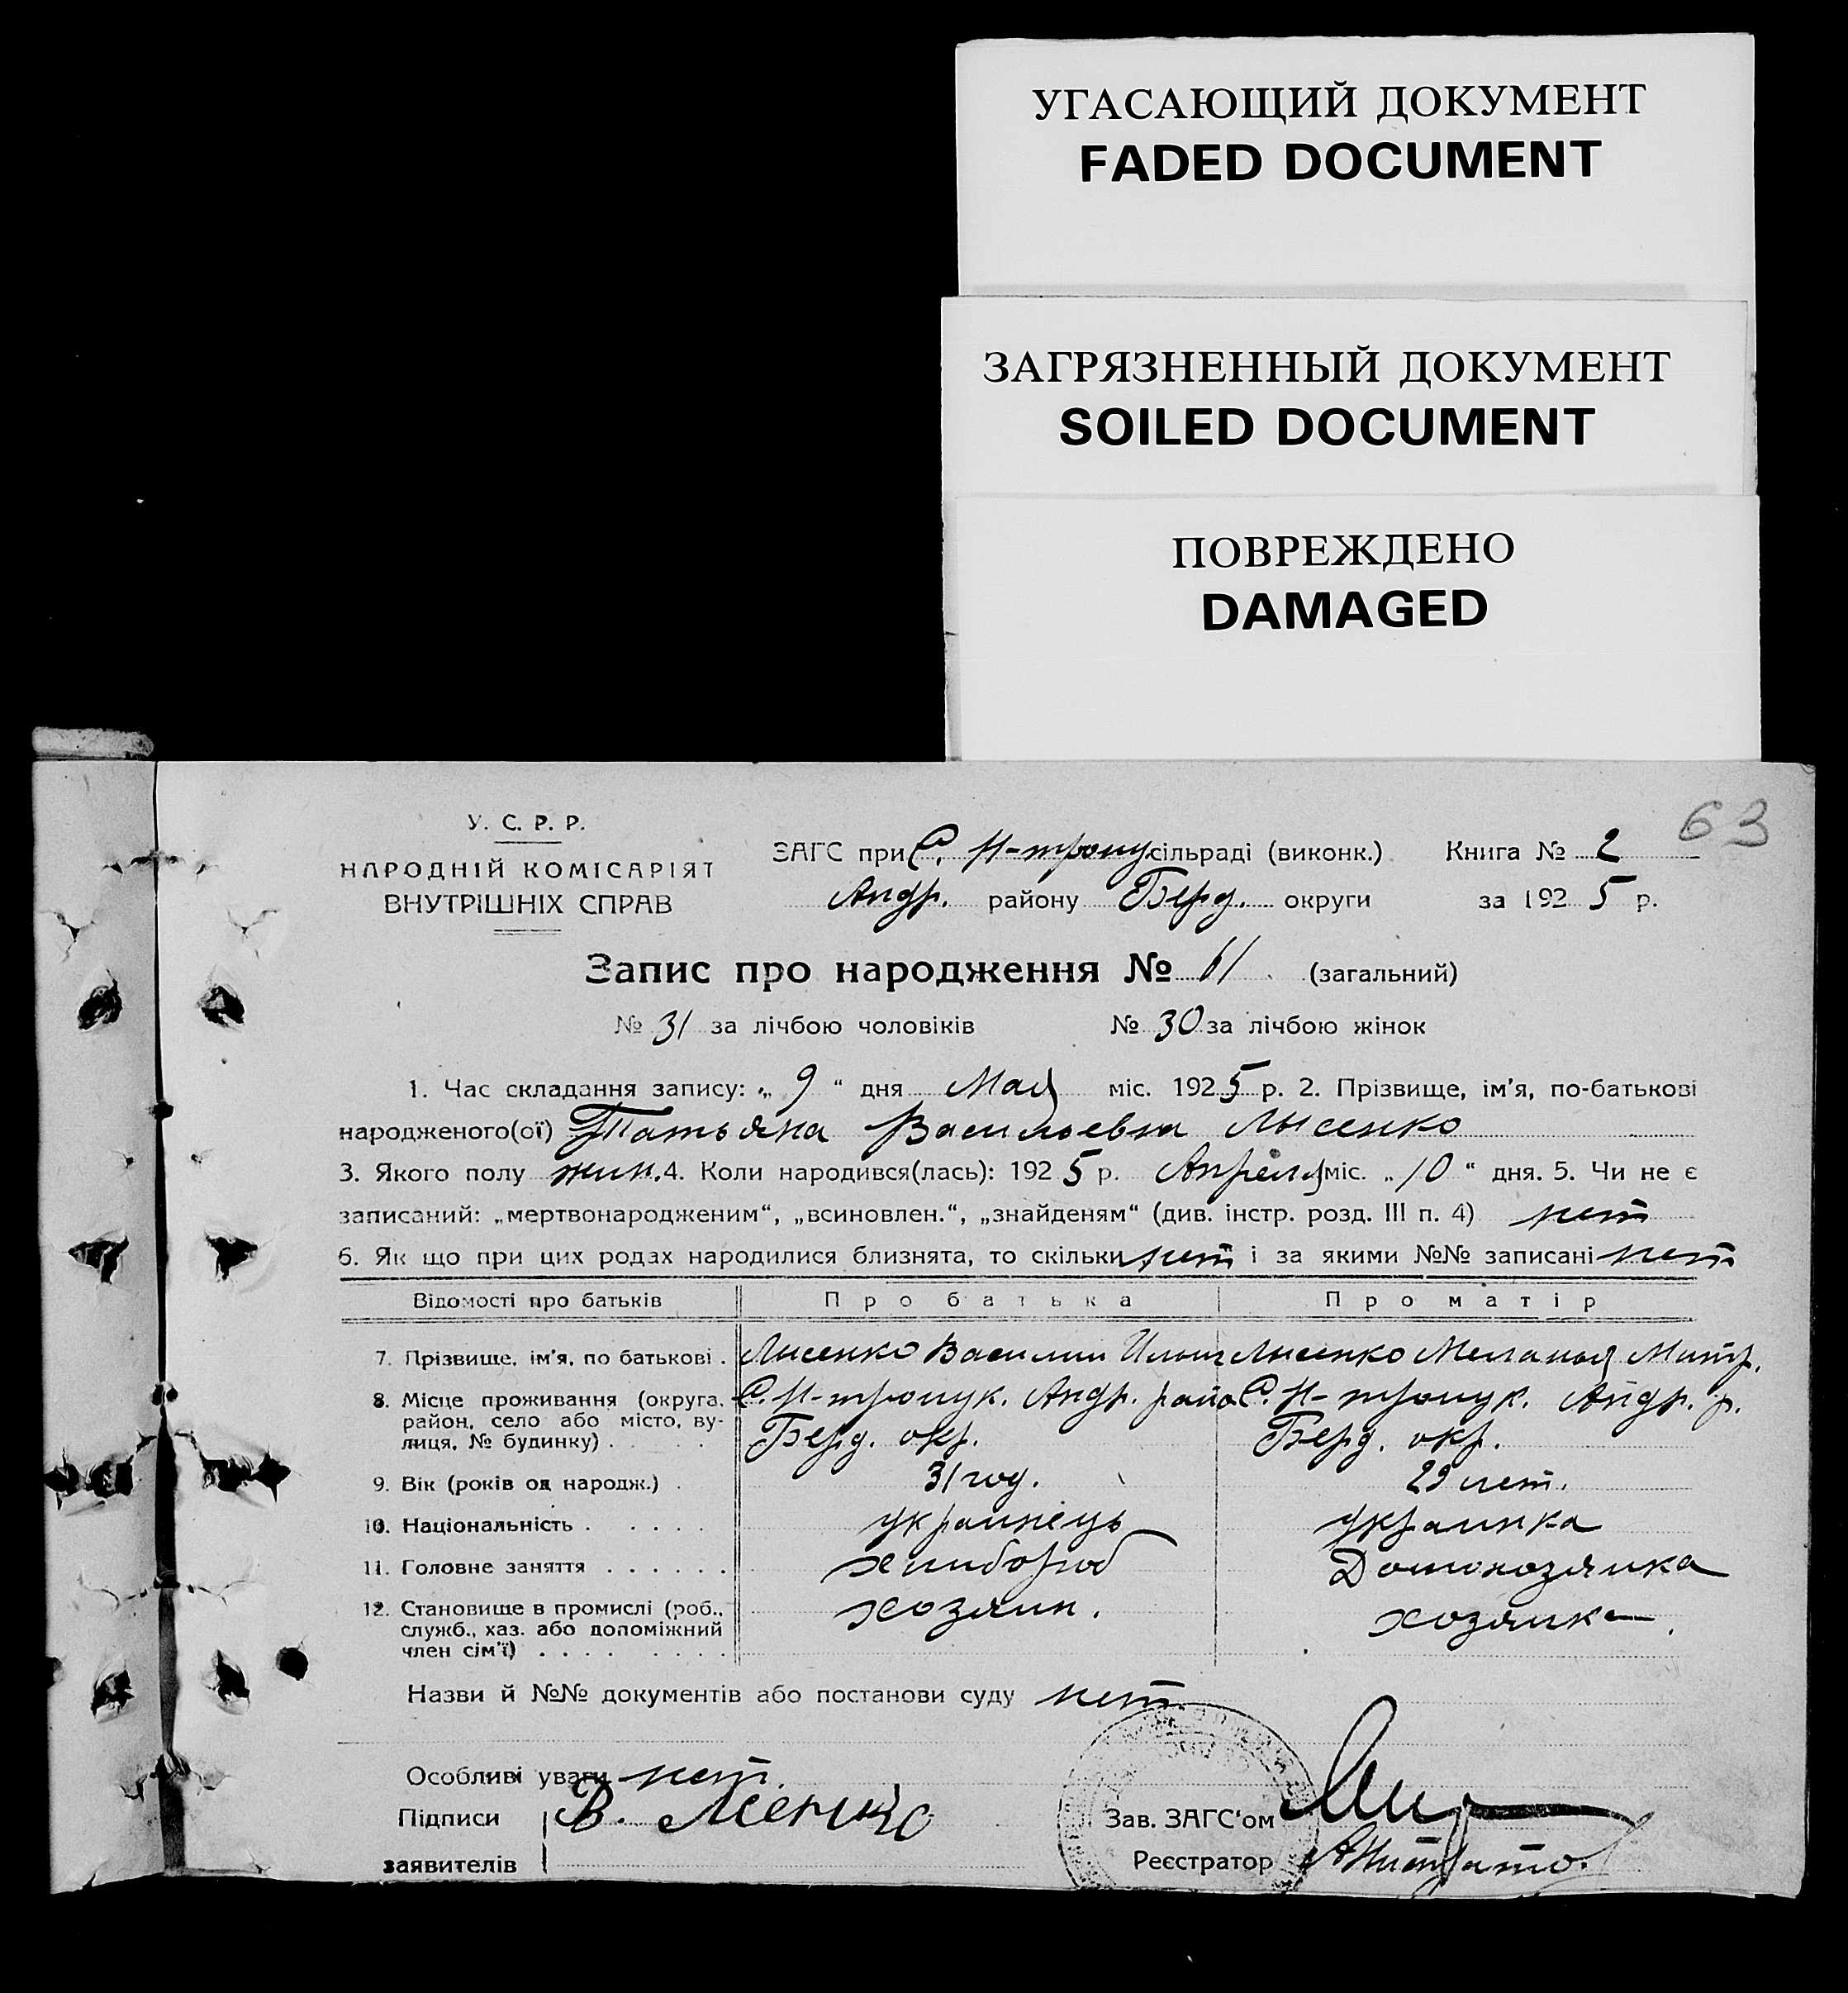 УГАСАЮЩИЙ ДОКУМЕНТ
FADED DOCUMENT
ЗАГРЯЗНЕННЫЙ ДОКУМЕНТ
SOILED DOCUMENT
ПОВРЕЖДЕНО
DAMAGED
63
У. С. Р. Р.
НАРОДНІЙ КОМІСАРІЯТ
ВНУТРІШНІХ СПРАВ
ЗАГС при С. Н-тропу сільраді (виконк.) Книга № 2
Андр. району Берд. округи за 1925 р.
Запис про народження № 61 (загальний)
№ 31 за лічбою чоловіків № 30 за лічбою жінок
1. Час складання запису: „ 9 “ дня Мая міс. 1925 р. 2. Прізвище, ім’я, по-батькові
народженого(ої) Татьяна Васильевна Лысенко
3. Якого полу жин. 4. Коли народився(лась): 1925 р. Апреля міс. „ 10 “ дня. 5. Чи не є
записаний: „мертвонародженим“, „всиновлен.“, „знайденям“ (див. інстр. розд. III п. 4) нет
6. Як що при цих родах народилися близнята, то скільки нет і за якими №№ записані нет
Відомості про батьків Про батька Про матір
7. Прізвище, ім’я, по батькові . Лысенко Василий Ильич Лысенко Меланья Митр.
8. Місце проживання (округа, район, село або місто, вулиця, № будинку) . С. Н-тропук. Андр. райо С. Н-тропук. Андр. р.
Берд. окр. Берд. окр.
9. Вік (років од народж.) . 31 год. 29 лет.
10. Національність . украинець украинка
11. Головне заняття . хлибороб Домохозяика
12. Становище в промислі (роб., служб., хаз. або допоміжний член сім’ї) . хозяин. хозяика
Назви й №№ документів або постанови суду нет
Особливі уваги нет.
Підписи В. Лсенко Зав. ЗАГС‘ом
заявителів Реєстратор